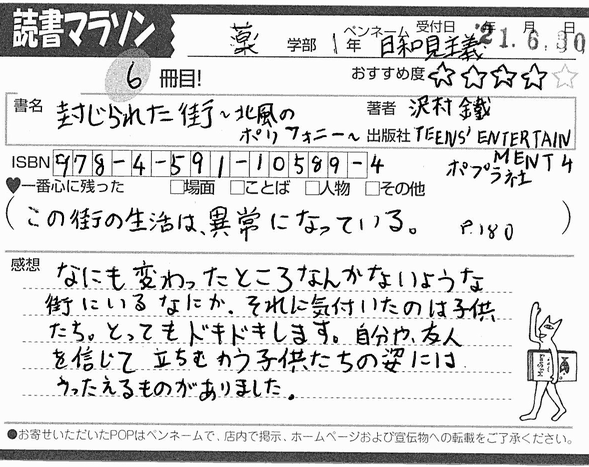 読書マラソン
薬 学部 1年 ペンネーム 日和見主義 受付日 年 月 日 21.6.30
6 冊目! おすすめ度 ☆☆☆☆☆
書名 封じられた街~北風の
ポリフォニー~
著者 沢村 鐵
出版社 TEENS' ENTERTAIN
MENT 4
ポプラ社
ISBN 978-4-591-10589-4
♥一番心に残った □場面 □ことば □人物 □その他
(この街の生活は、異常になっている。 P.180)
感想
なにも変わったところなんかないような
街にいるなにか。それに気付いたのは子供
たち。とってもドキドキします。自分や、友人
を信じて立ちむかう子供たちの姿には
うったえるものがありました。
●お寄せいただいたPOPはペンネームで、店内で掲示、ホームページおよび宣伝物への転載をご了承ください。